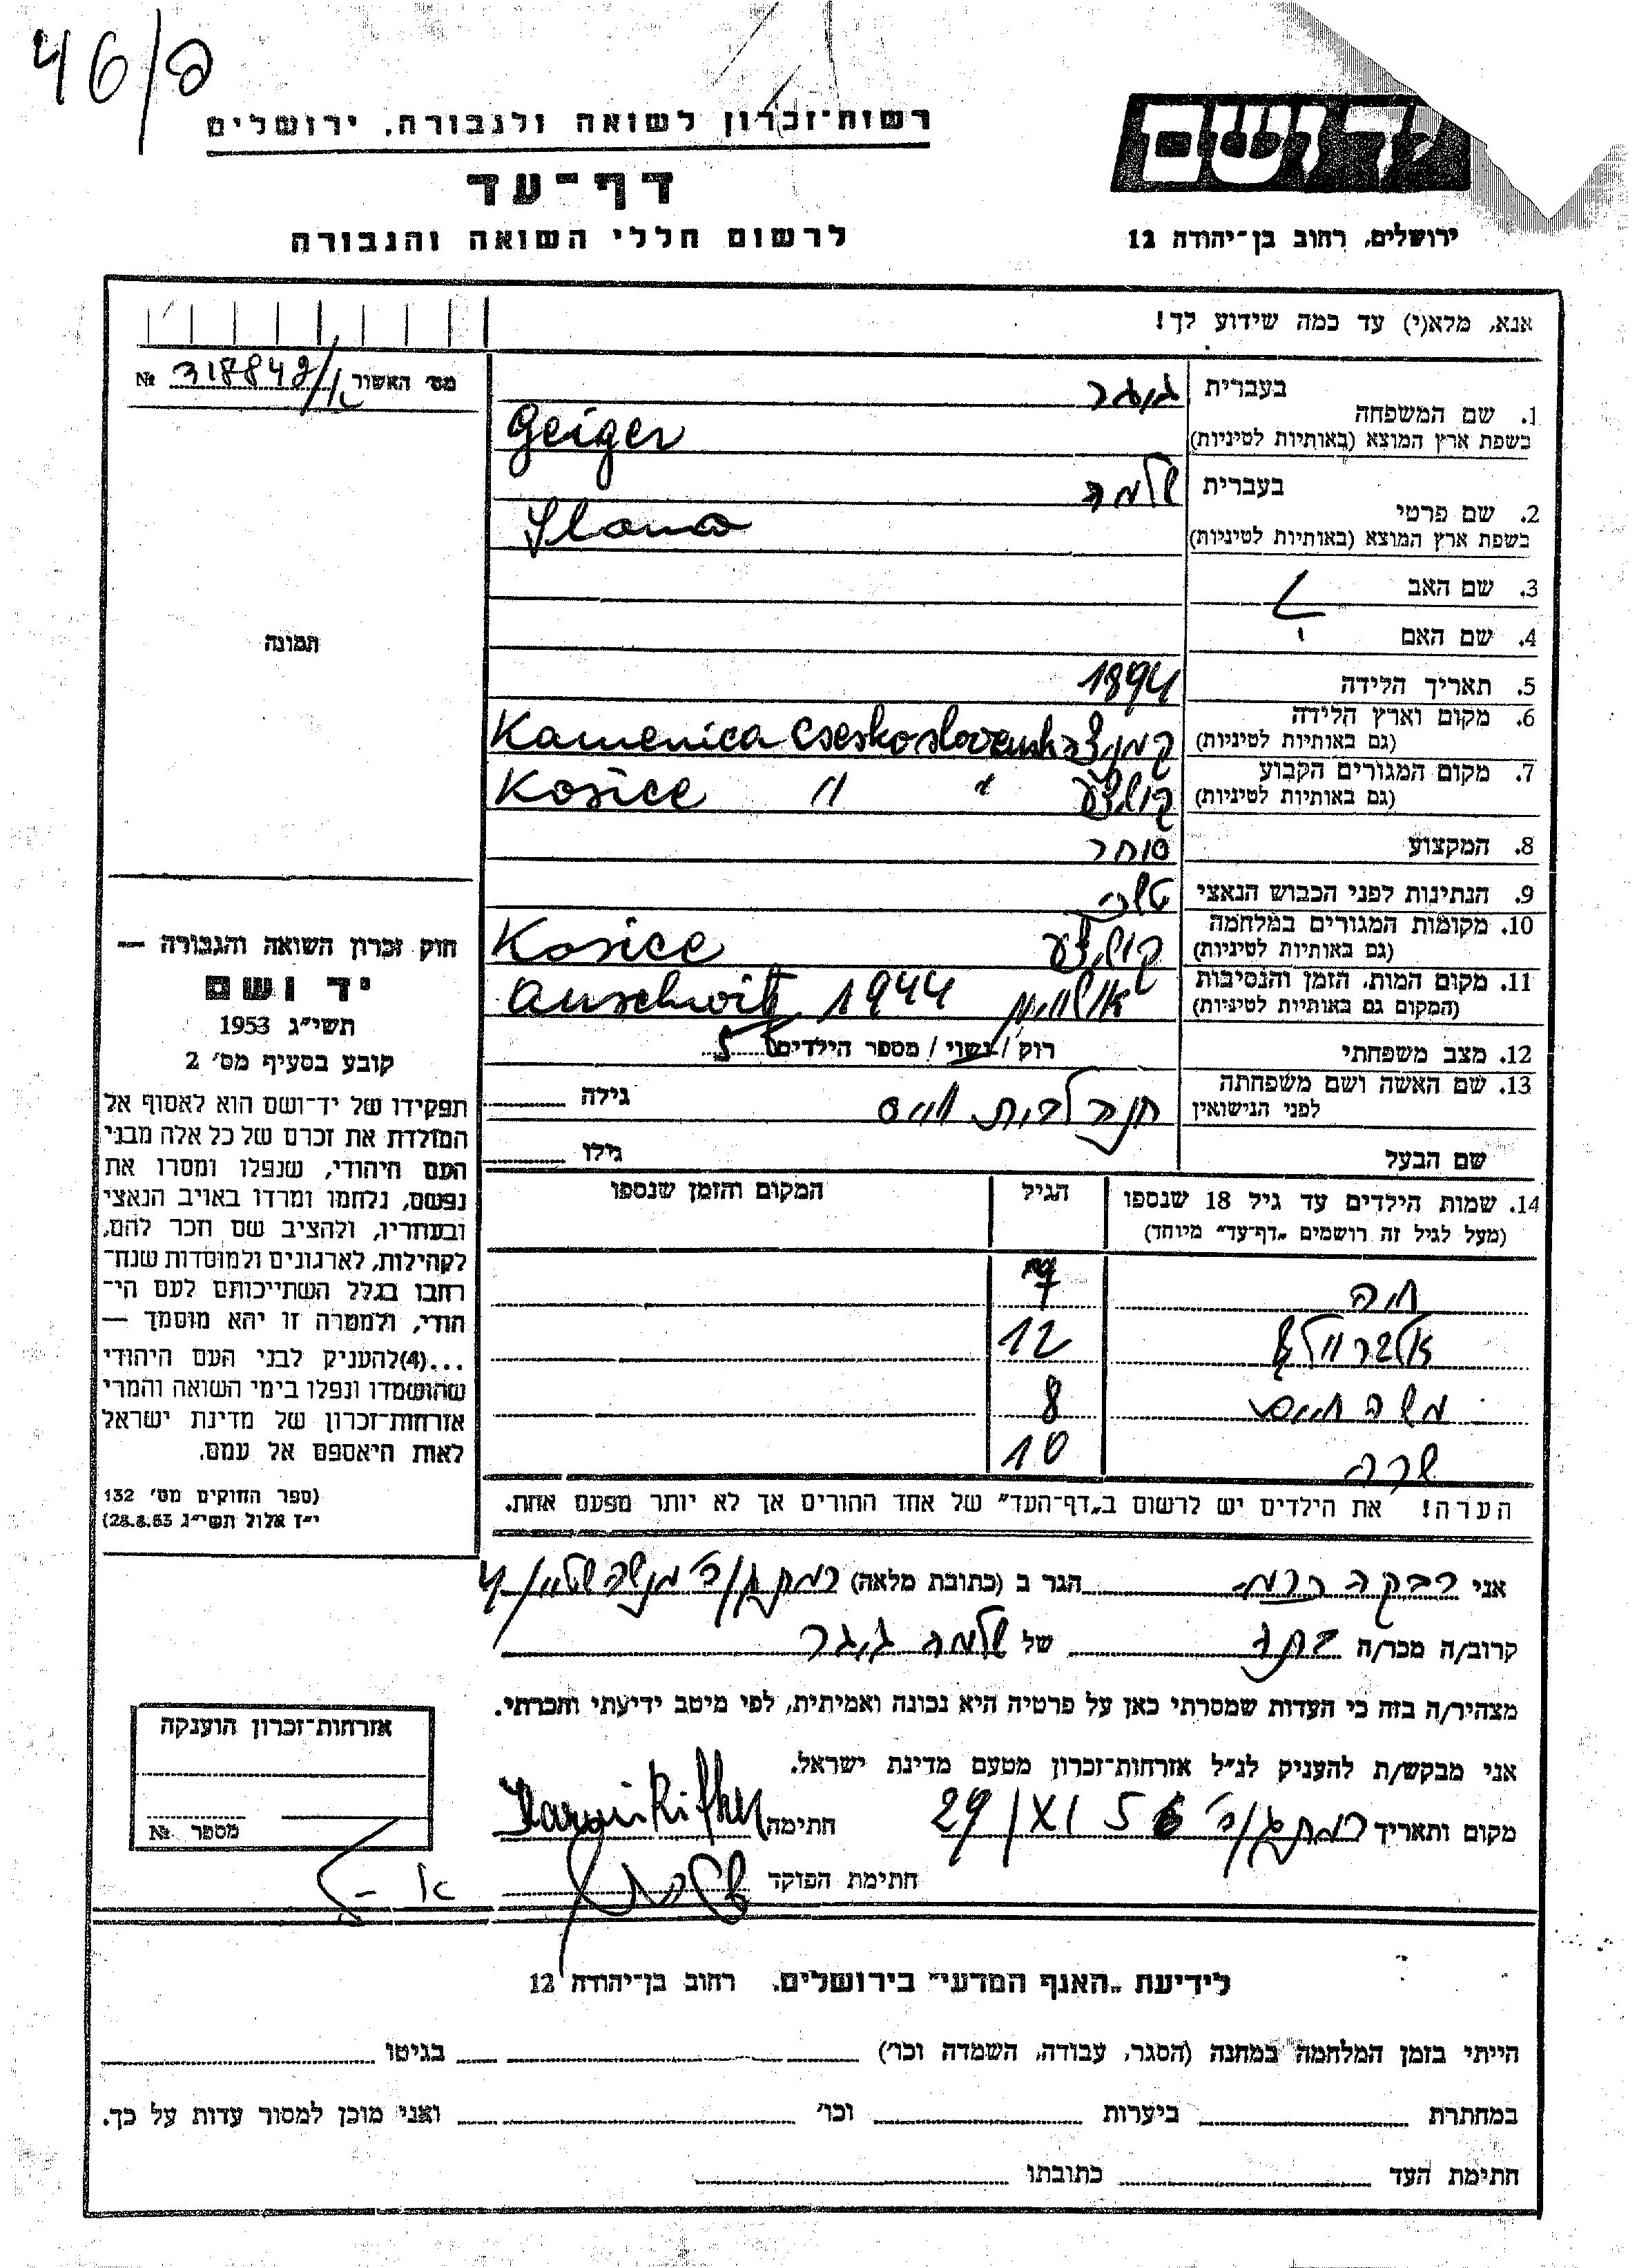 46/פ
רשות־זכרון לשואה ולגבורה, ירושלים
דף־עד
לרשום חללי השואה והגבורה
ירושלים, רחוב בן־יהודה 12
אנא, מלא(י) עד כמה שידוע לך!
מס׳ האשור № 318842/א
בעברית גיגר
1. שם המשפחה
בשפת ארץ המוצא (באותיות לטיניות) Geiger
בעברית שלמה
2. שם פרטי
בשפת ארץ המוצא (באותיות לטיניות)
3. שם האב
4. שם האם
תמונה
5. תאריך הלידה 1894
6. מקום וארץ הלידה
(גם באותיות לטיניות) Kamenica
7. מקום המגורים הקבוע
(גם באותיות לטיניות) קושיצע " " Kosice
8. המקצוע סוחר
9. הנתינות לפני הכבוש הנאצי
10. מקומות המגורים במלחמה
(גם באותיות לטיניות) קושיצע Kosice
11. מקום המות, הזמן והנסיבות
(המקום גם באותיות לטיניות) 1944 Auschwitz
12. מצב משפחתי רוק / נשוי / מספר הילדים 5
13. שם האשה ושם משפחתה
לפני הנישואין חנה לבית ווייס גילה
שם הבעל גילו
14. שמות הילדים עד גיל 18 שנספו הגיל המקום והזמן שנספו
(מעל לגיל זה רושמים „דף־עד" מיוחד)
חיה 7
12
משה חיים 8
שרה 10
הערה! את הילדים יש לרשום ב„דף־העד" של אחד ההורים אך לא יותר מפעם אחת.
חוק זכרון השואה והגבורה —
יד ושם
תשי״ג 1953
קובע בסעיף מס׳ 2
תפקידו של יד־ושם הוא לאסוף אל
המולדת את זכרם של כל אלה מבני
העם היהודי, שנפלו ומסרו את
נפשם, נלחמו ומרדו באויב הנאצי
ובעוזריו, ולהציב שם וזכר להם,
לקהילות, לארגונים ולמוסדות שנח־
רחבו בגלל השתייכותם לעם הי־
הודי, ולמטרה זו יהא מוסמך —
...(4) להעניק לבני העם היהודי
שהושמדו ונפלו בימי השואה והמרי
אזרחות־זכרון של מדינת ישראל
לאות היאספם אל עמם.
(ספר החוקים מס׳ 132
י״ז אלול תשי״ג 28.8.53)
אני רבקה הגר ב (כתובת מלאה)
קרוב/ה מכר/ה של שלמה גיגר
מצהיר/ה בזה כי העדות שמסרתי כאן על פרטיה היא נכונה ואמיתית, לפי מיטב ידיעתי והכרתי.
אני מבקש/ת להעניק לנ״ל אזרחות־זכרון מטעם מדינת ישראל.
מקום ותאריך 29/XI 56 חתימה
חתימת הפוקד
אזרחות־זכרון הוענקה
מספר №
לידיעת „האגף המדעי" בירושלים, רחוב בן־יהודה 12
הייתי בזמן המלחמה במחנה (הסגר, עבודה, השמדה וכו׳) בגיטו
במחתרת ביערות וכו׳ ואני מוכן למסור עדות על כך.
חתימת העד כתובתו